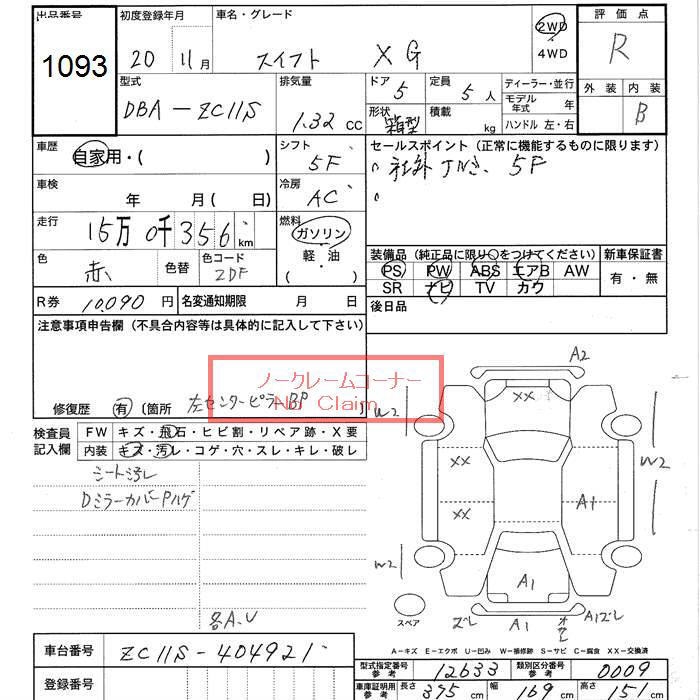 出品番号 初度登録年月 車名・グレード 評価点
1093 20 11月 スイフト XG 2WD 4WD R
型式 排気量 ドア 5 定員 5人 ディーラー・並行 外装 内装
DBA-ZC11S 1.32 cc 形状 箱型 積載 kg モデル年式 年 B
ハンドル 左・右
車歴 自家用・( ) シフト 5F セールスポイント (正常に機能するものに限ります)
社外 5F
車検 年 月 ( 日) 冷房 AC
走行 15万 0千 356 km 燃料 ガソリン 軽・油 ( )
色 赤 色替 色コード ZDF
装備品 (純正品に限り○をつけてください) 新車保証書
PS PW ABS エアB AW 有・無
SR ナビ TV カワ
R券 10,090 円 名変通知期限 月 日 後日品
注意事項申告欄 (不具合内容等は具体的に記入して下さい)
ノークレームコーナー
No Claim
修復歴 有 〔箇所 左センターピラー BP 〕
検査員記入欄 FW キズ・飛石・ヒビ割・リペア跡・X要
内装 キズ・汚レ・コゲ・穴・スレ・キレ・破レ
シート汚レ
DミラーカバーPハゲ
各A.U
A2
XX
W2 W2
XX
XX A1
W2
A1
スペア ズレ A1 A1ズレ
A-キズ E-エクボ U-凹み W-補修跡 S-サビ C-腐食 XX-交換済
車台番号 ZC11S-404921
型式指定番号 参考 12633 類別区分番号 参考 0009
登録番号
車庫証明用 参考 長さ 375 cm 幅 169 cm 高さ 151 cm